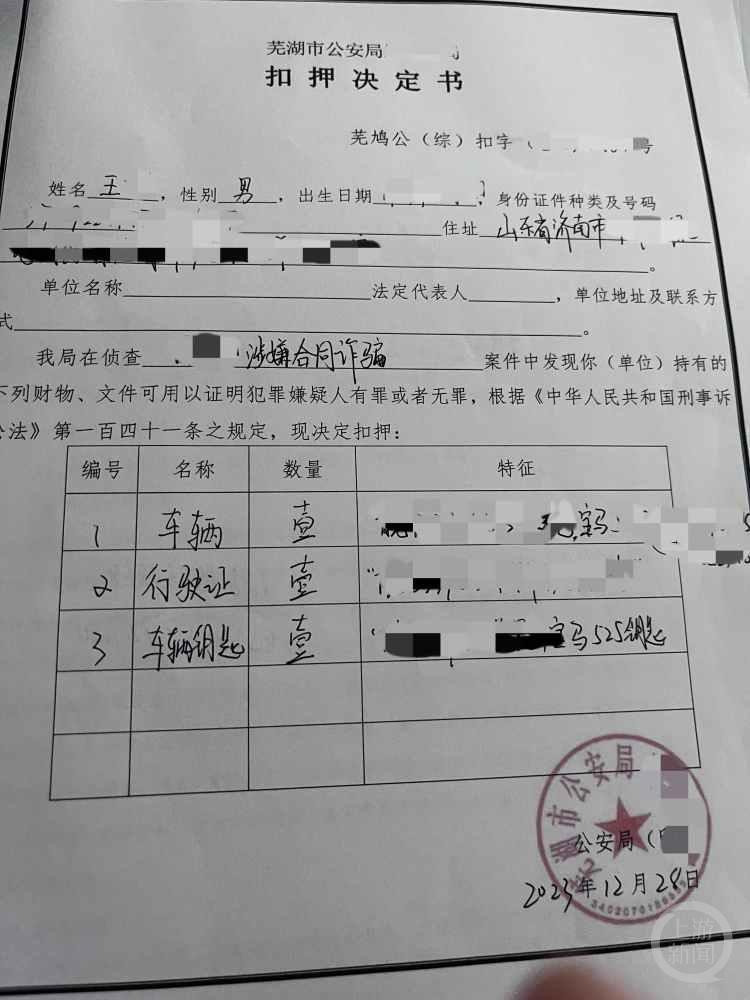 芜湖市公安局
扣押决定书
芜鸠公（综）扣字（ 号
姓名 王 ，性别 男 ，出生日期 ，身份证件种类及号码
住址 山东省济南市
。
单位名称 法定代表人 ，单位地址及联系方
式 。
我局在侦查 涉嫌合同诈骗 案件中发现你（单位）持有的
下列财物、文件可用以证明犯罪嫌疑人有罪或者无罪，根据《中华人民共和国刑事诉
讼法》第一百四十一条之规定，现决定扣押：
编号 名称 数量 特征
1 车辆 壹 宝马
2 行驶证 壹
3 车辆钥匙 壹 宝马525钥匙
芜湖市公安局
公安局（
2023年12月28日
上游新闻